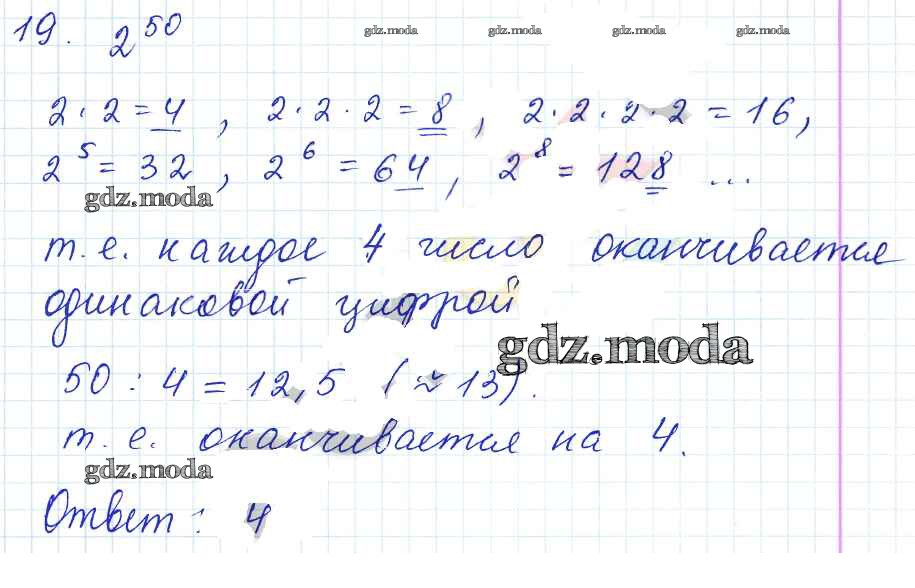 19. 2^50
gdz.moda gdz.moda gdz.moda gdz.moda
2·2=4, 2·2·2=8, 2·2·2·2=16,
2^5=32, 2^6=64, 2^8=128 ...
gdz.moda
т.е. каждое 4 число оканчивается
одинаковой цифрой
gdz.moda
50:4=12,5 (≈13).
т.е. оканчивается на 4.
gdz.moda
Ответ: 4